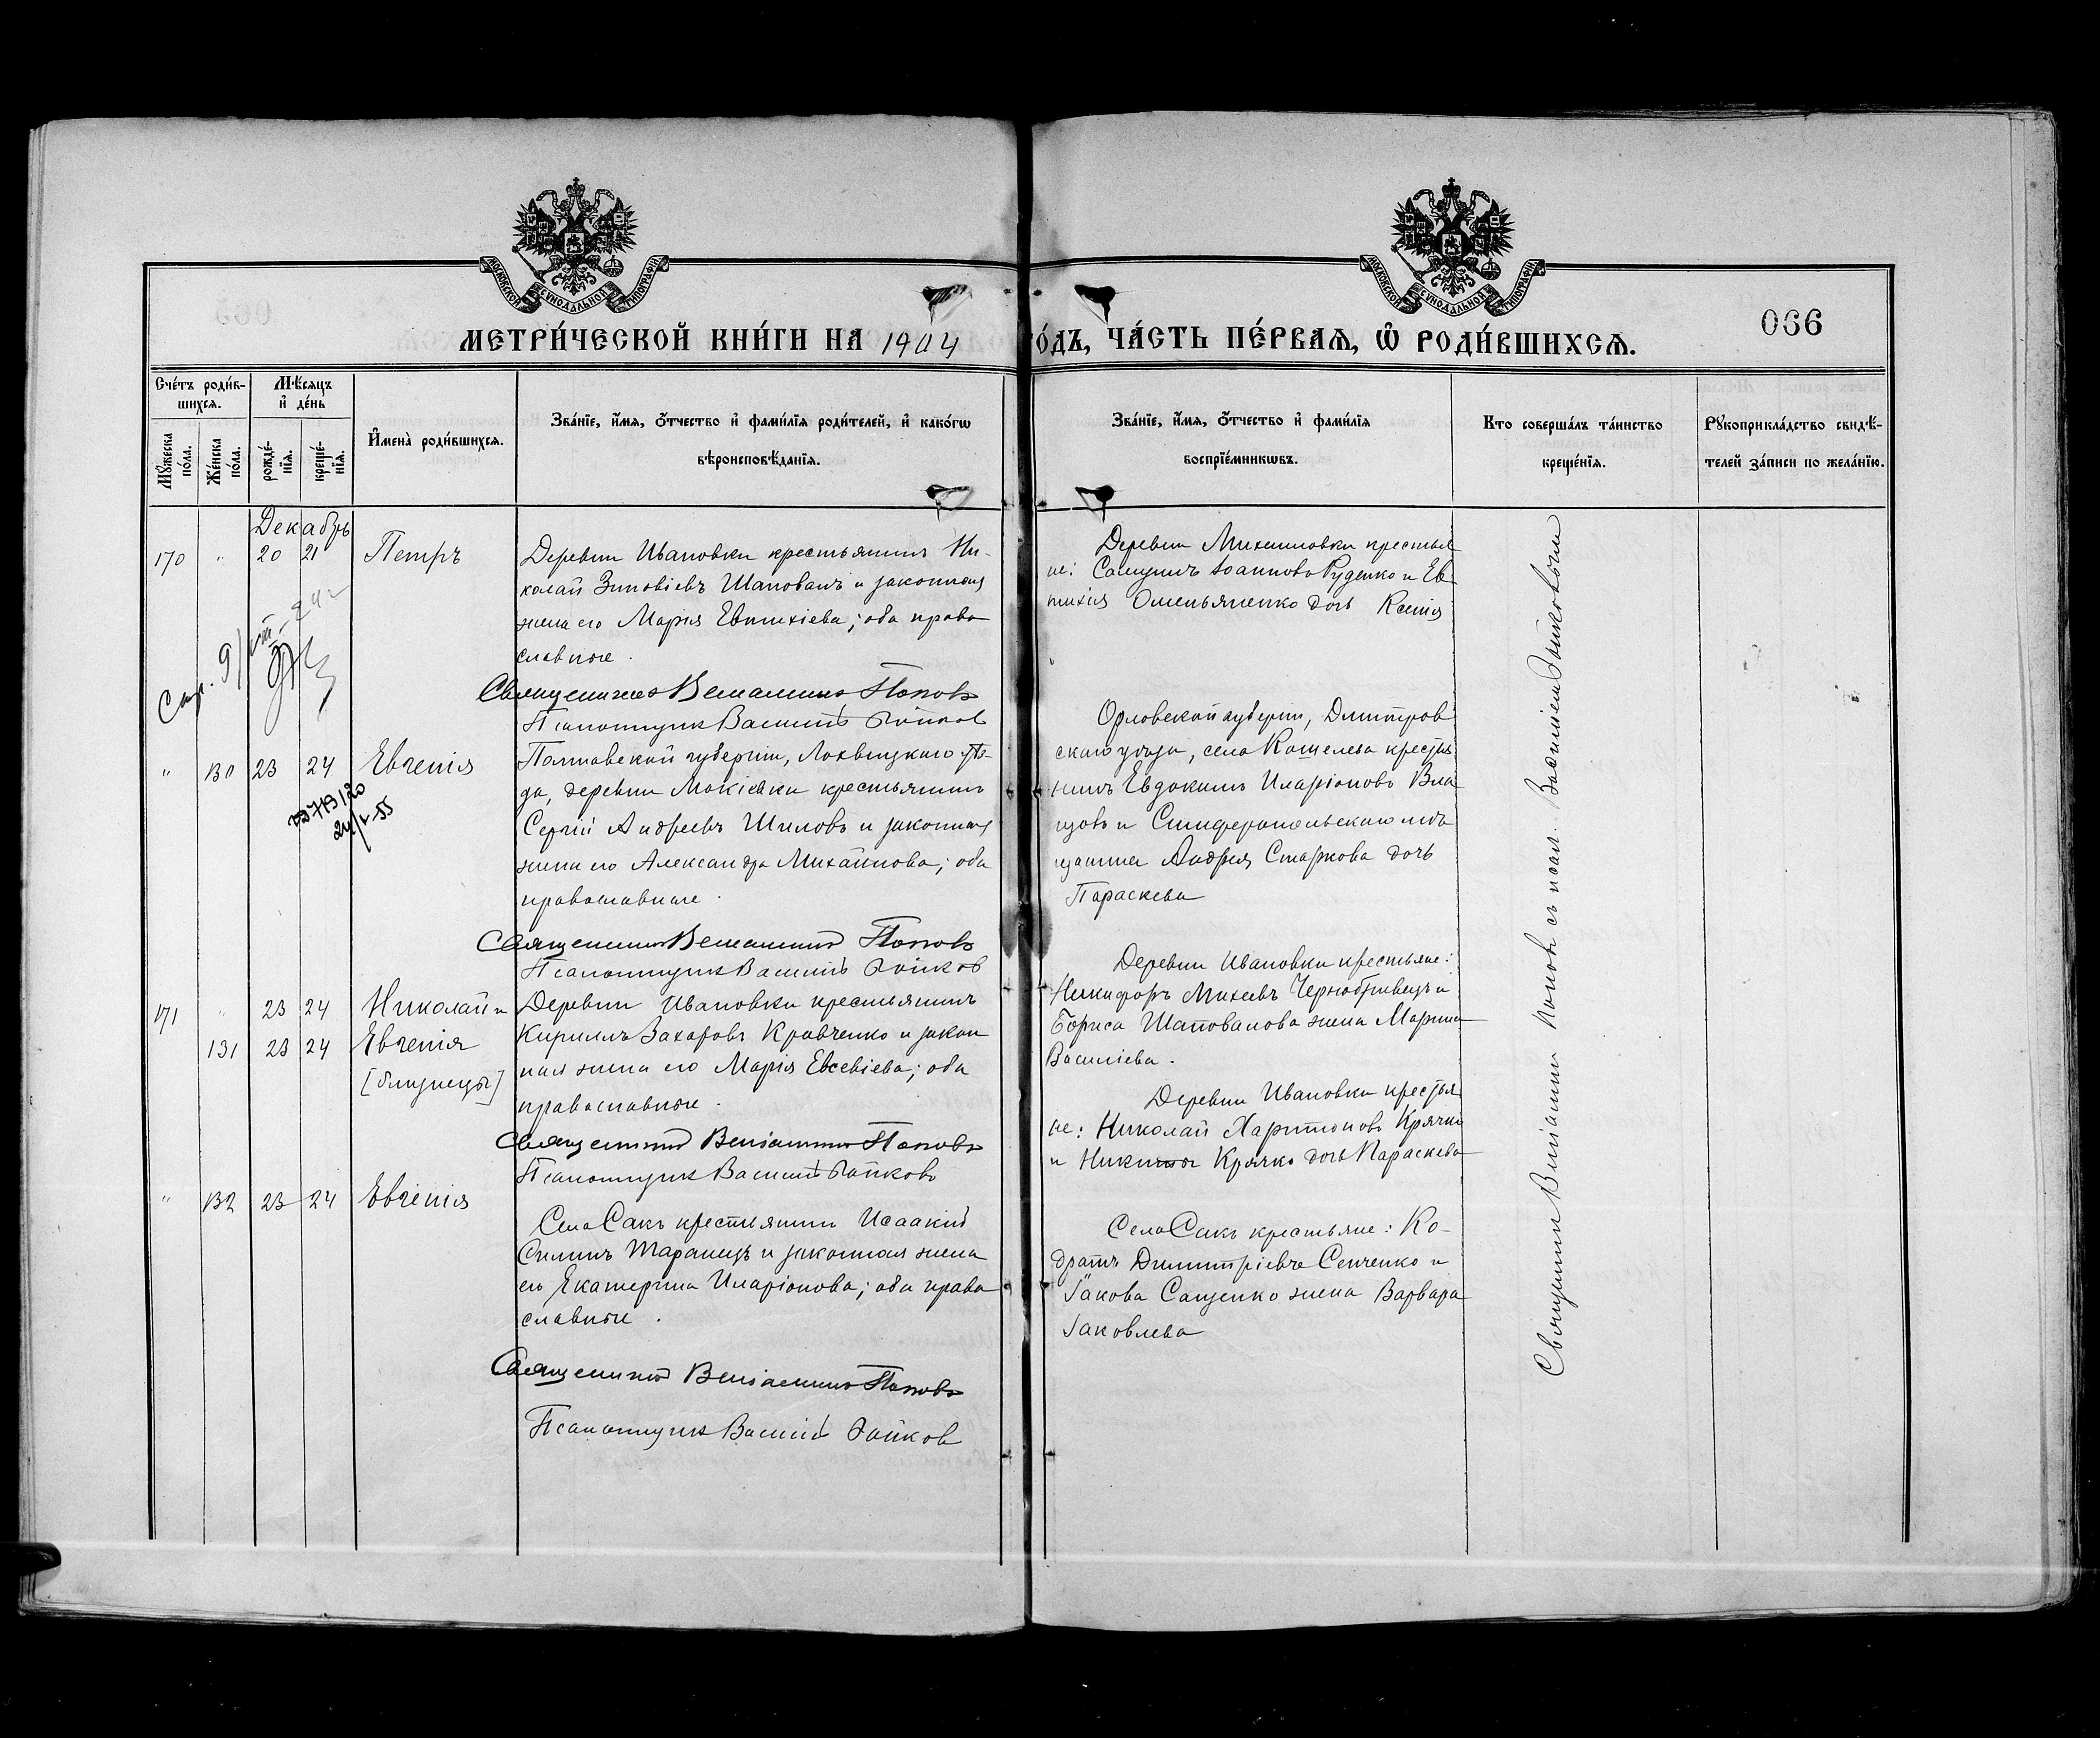 МОСКОВСКОЙ СѴНОДАЛЬНОЙ ТИПОГРАФІИ
МОСКОВСКОЙ СѴНОДАЛЬНОЙ ТИПОГРАФІИ
066
МЕТРИ́ЧЕСКОЙ КНИ́ГИ НА 1904 ГО́ДЪ, ЧА́СТЬ ПЕ́РВАЯ, Ѡ РОДИ́ВШИХСЯ.
Сче́тъ роди́в-
шихся.
Мѣ́сяцъ
и де́нь
Мꙋ́жеска по́ла.
Же́нска по́ла.
рожде́-
нїя.
креще́-
нїя.
И҆мена̀ роди́вшихся.
Зва́нїе, и҆́мя, ѻ҆́тчество и҆ фами́лїя роди́телей, и҆ како́гѡ
вѣроисповѣ́данїя.
Зва́нїе, и҆́мя, ѻ҆́тчество и҆ фами́лїя
воспрїе́мникѡвъ.
Кто соверша́лъ та́инство
креще́нїя.
Рꙋкоприкла́дство свидѣ́-
телей за́писи по жела́нїю.
Декабрь
170 " 20 21 Петръ
Деревни Ивановки крестьянинъ Ни-
колай Зиновіевъ Шаповалъ и законная
жена его Марія Евтихіева; оба право
славные.
Священникъ Веніаминъ Поповъ
Псаломщикъ Василій Зайковъ
Деревни Михайловки крестья
не: Самуилъ Іоанновъ Руденко и Ев
тихія Омельяненко дочь Ксенія
" 130 23 24 Евгенія
Полтавской губерніи, Лохвицкаго уѣз-
да, деревни Мокіевки крестьянинъ
Сергій Андреевъ Шиловъ и законная
жена его Александра Михайлова; оба
православные.
Священникъ Веніаминъ Поповъ
Псаломщикъ Василій Зайковъ
Орловской губерніи, Дмитров
скаго уѣзда, села Кошелева крестья
нинъ Евдокимъ Иларіоновъ Вла
совъ и Симферопольскаго мѣ
щанина Андрея Старкова дочь
Параскева
171 " 23 24 Николай и
131 23 24 Евгенія
[близнецы]
Деревни Ивановки крестьянинъ
Кириллъ Захаровъ Кравченко и закон
ная жена его Марія Евсевіева; оба
православные.
Священникъ Веніаминъ Поповъ
Псаломщикъ Василій Зайковъ
Деревни Ивановки крестьяне:
Никифоръ Михеевъ Чернобривецъ и
Бориса Шаповалова жена Марина
Василіева.
Деревни Ивановки крестья
не: Николай Харитоновъ Крячко
и Никиты Крячко дочь Параскева
" 132 23 24 Евгенія
Села Сакъ крестьянинъ Исаакій
Силинъ Таранецъ и законная жена
его Екатерина Иларіонова; оба право
славные.
Священникъ Веніаминъ Поповъ
Псаломщикъ Василій Зайковъ
Села Сакъ крестьяне: Ко-
дратъ Димитріевъ Сенченко и
Іакова Саценко жена Варвара
Іаковлева
Священникъ Веніаминъ Поповъ съ псал. Василіемъ Зайковымъ